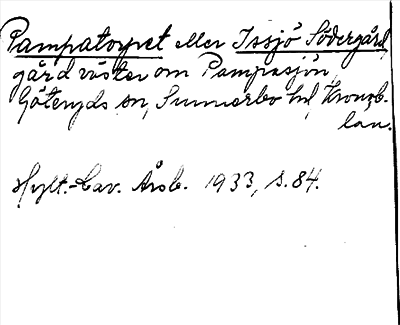 Pampatorpet eller Issjö Södergård,
gård väster om Pampasjön,
Göteryds sn, Sunnerbo hd, Kronob.
län.
Hylt.-Cav. Årsb. 1933, s. 84.